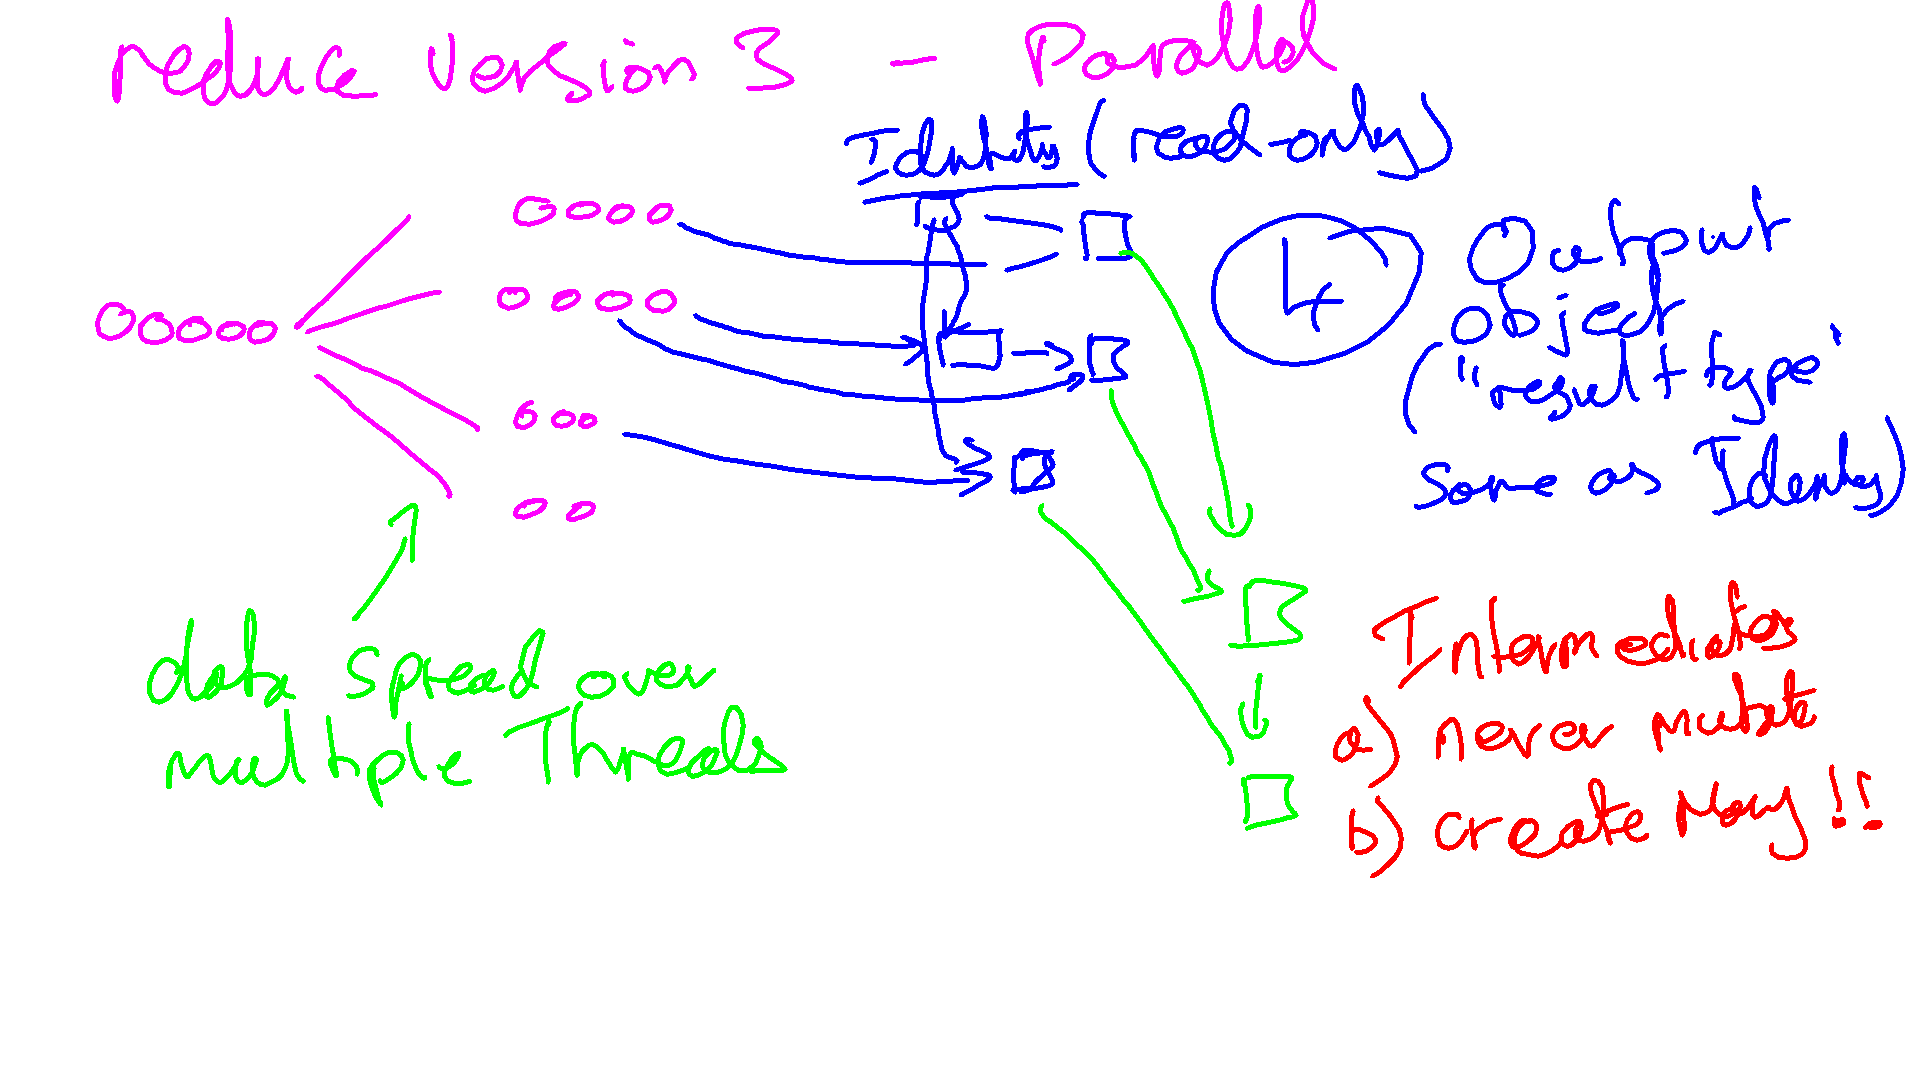 reduce version 3 - Parallel
Identity (read-only)
4
Output
object
("result type"
same as Identity)
data spread over
multiple Threads
Intermediates
a) never mutate
b) create Many!!